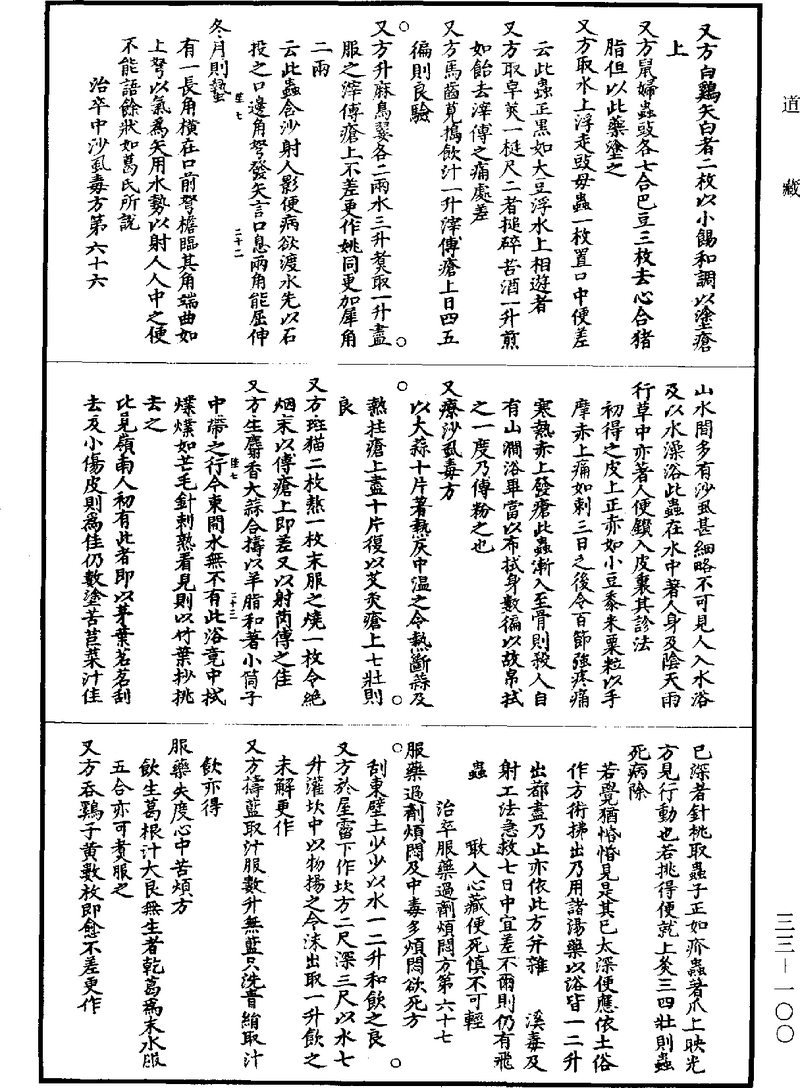 道藏
又方白鷄矢白者二枚以小餳和調以塗瘡
上
又方鼠婦蟲豉各七合巴豆三枚去心合猪
脂但以此藥塗之
又方取水上浮走豉母蟲一枚置口中便差
云此蟲正黑如大豆浮水上相遊者
又方取皁莢一梃尺二者搥碎苦酒一升煎
如飴去滓傅之痛處差
又方馬齒莧搗飲汁一升滓傅瘡上日四五
徧則良驗
又方升麻鳥翣各二兩水三升煑取一升盡
服之滓傅瘡上不差更作姚同更加犀角
二兩
云此蟲含沙射人影便病欲渡水先以石
投之口邊角弩發矢言口息兩角能屈伸
冬月則蟄
有一長角横在口前弩檐臨其角端曲如
上弩以氣為矢用水勢以射人人中之便
不能語餘狀如葛氏所說
治卒中沙虱毒方第六十六
山水間多有沙虱甚細略不可見人入水浴
及以水澡浴此蟲在水中著人身及陰天雨
行草中亦著人便鑽入皮裏其診法
初得之皮上正赤如小豆黍米粟粒以手
摩赤上痛如刺三日之後令百節強疼痛
寒熱赤上發瘡此蟲漸入至骨則殺人自
有山澗浴畢當以布拭身數徧以故帛拭
之一度乃傅粉之也
又療沙虱毒方
以大蒜十片著熱灰中温之令熱斷蒜及
熱拄瘡上盡十片復以艾灸瘡上七壯則
良
又方斑猫二枚熬一枚末服之燒一枚令絕
烟末以傅瘡上即差又以射罔傅之佳
又方生麝香大蒜合擣以羊脂和著小筒子
中帶之行今東間水無不有此浴竟中拭
爍爍如芒毛針刺熟看見則以竹葉抄挑
去之
比見嶺南人初有此者即以茅葉茗茗刮
去及小傷皮則為佳仍數塗苦苣菜汁佳
已深者針挑取蟲子正如疥蟲著爪上映光
方見行動也若挑得便就上灸三四壯則蟲
死病除
若覺猶惛惛見是其已太深便應依土俗
作方術拂出乃用諸湯藥以浴皆一二升
出都盡乃止亦依此方并雜 溪毒及
射工法急救七日中宜差不爾則仍有飛
蟲 啖人心藏便死慎不可輕
治卒服藥過劑煩悶方第六十七
服藥過劑煩悶及中毒多煩悶欲死方
刮東壁土少少以水一二升和飲之良
又方於屋霤下作坎方二尺深三尺以水七
升灌坎中以物揚之令沫出取一升飲之
未解更作
又方擣藍取汁服數升無藍只洗青絹取汁
飲亦得
服藥失度心中苦煩方
飲生葛根汁大良無生者乾葛為末水服
五合亦可煑服之
又方吞鷄子黄數枚即愈不差更作
三三—一〇〇